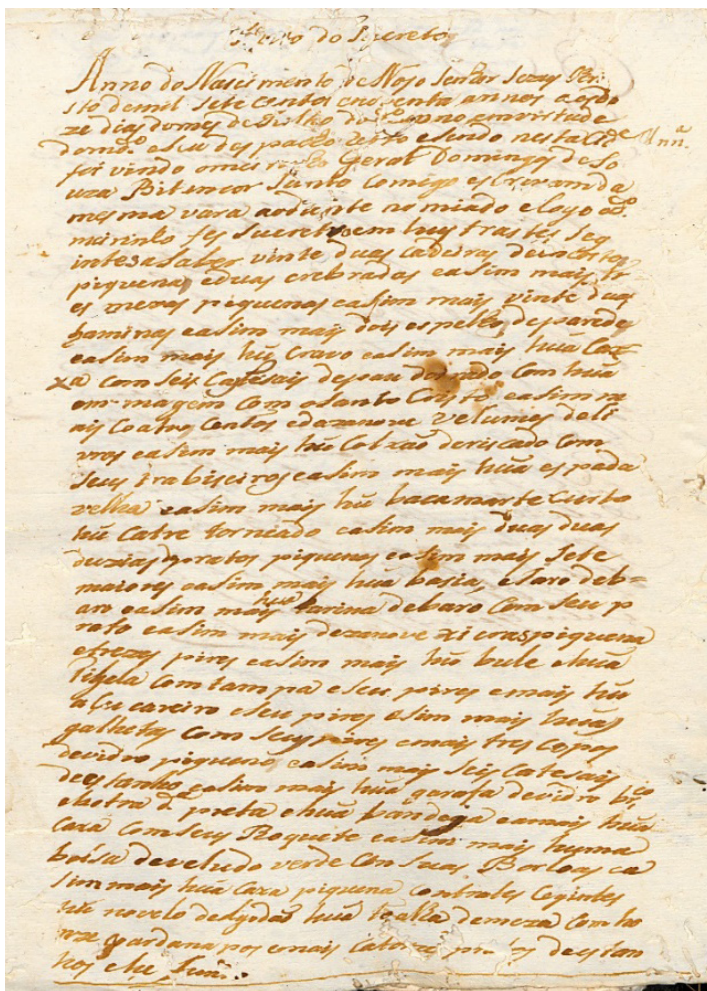 do Sucresto
Anno do Nascimento de Noso Senhor Jezus Cri
sto demil Sete Centos e noventa annos aosdo
ze dias domes de
domo eseu des pacho nesta
foi vindo omeirinho Geral Domingos de So
uza Bitancor Junto Comigo escrivam da
mesma vara aodiante nomiado elogo odo
meirinho fes sucresto em huns trastes Seg
intes asaber vinte duas Cadeiras deincosto
piquenas eduas crebradas easim mais tr
es mezes piquenos easim mais vinte duas
Laminas easim mais dois espelhos de parede
easim mais hũ Cravo easim mais huã Cai
xa Com Seis Castesais depau dourado Com huã
magem Com oSanto Cristo easim m
ais Coatro Centos edazanove velumes de li
vros easim mais hũ Colxaõ deriscado Com
seus trabiseiros easim mais huã espada
velha easim mais hũ bacamarte Curto
hũ Catre torneado easim mais duas duas
duzias de pratos piquenos easim mais Sete
maiores easim mais huã basia, eJaro deb=
aro easim mais huã tarina debaro Com Seu p
rato easim mais dezanove xicras piquena
etreze pires easim mais hũ bule ehuã
Tigela Com tampa eseu pires emais hũ
asucareiro eseu pires esim mais huas
galhetas Com seus pires emais tres Copos
devidro piquenos easim mais Seis Catesais
de estanho easim mais huã garafa devidro br.co
ehotra d.ª preta ehuã bandeja eamais huã
Caxa Com Seus Roquete easim mais huma
bolsa develudo verde Con Suas Borlas ea
sim mais huã Caxa piquena
hũ novelo delgodaõ huã toalha demeza Com ho
nze gardanapos emais Catorze pratos deestan
hos ehu